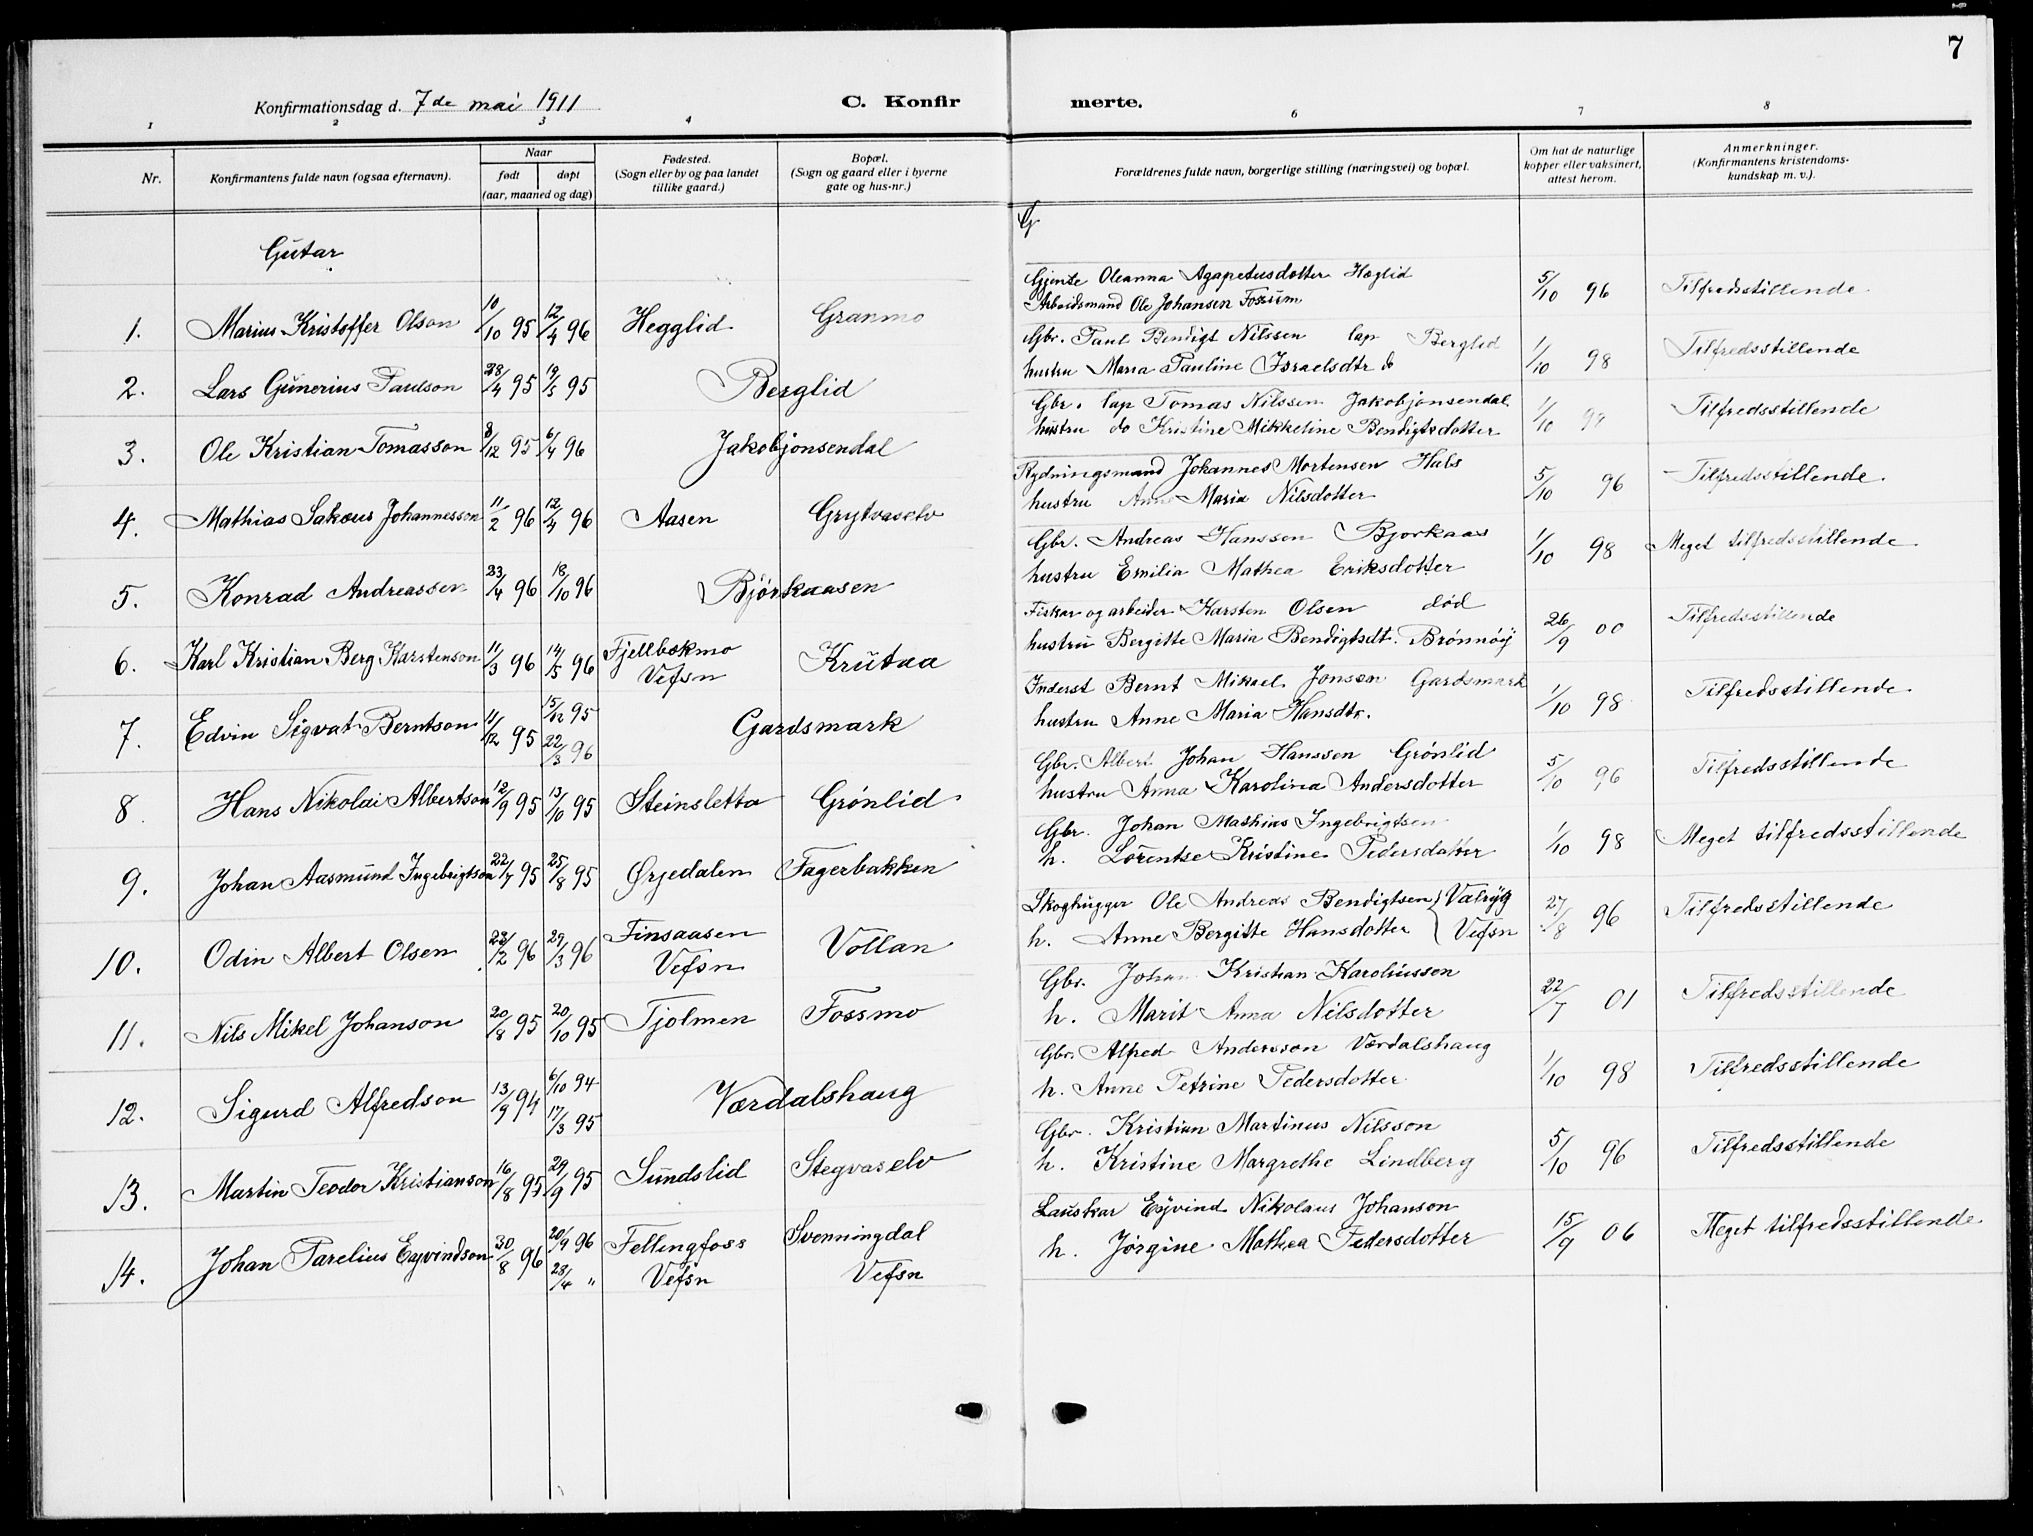 7
Konfirmationsdag d. 7de mai 1911
C. Konfir merte.
1 2 3 4 6 7 8
Nr.
Konfirmantens fulde navn (ogsaa efternavn).
Naar
født døpt
(aar, maaned og dag)
Fødested.
(Sogn eller by og paa landet
tillike gaard.)
Bopæl.
(Sogn og gaard eller i byerne
gate og hus-nr.)
Forældrenes fulde navn, borgerlige stilling (næringsvei) og bopæl.
Om hat de naturlige
kopper eller vaksinert,
attest herom.
Anmerkninger.
(Konfirmantens kristendoms-
kundskap m. v.).
G
Gutar
1. Marius Kristoffer Olson 10/10 95 12/4 96 Hegglid Granmo
Gjente Oleanna Agapetusdotter Hæglid
Arbeidsmand Ole Johansen Fossum
5/10 96 Tilfredsstillende
2. Lars Gunerius Paulson 28/4 95 19/5 95 Berglid
Gbr. Paul Bendigt Nilssen lap Berglid
hustru Maria Pauline Israelsdtr do
1/10 98 Tilfredsstillende
3. Ole Kristian Tomasson 8/12 95 6/4 96 Jakobjonsendal
Gbr. lap Tomas Nilssen Jakobjonsendal
hustru do Kristine Mikkeline Bendigtsdotter
1/10 98 Tilfredsstillende
4. Mathias Sakæus Johannesson 11/2 96 12/4 96 Aasen Grytvaselv
Rydningsmand Johannes Mortensen Hals
hustru Anne Maria Nilsdotter
5/10 96 Tilfredsstillende.
5. Konrad Andreassen 23/4 96 18/10 96 Bjørkaasen
Gbr. Andreas Hanssen Bjorkaas
hustru Emilia Mathea Eriksdotter
1/10 98 Meget tilfredsstillende
6. Karl Kristian Berg Karstenson 11/3 96 14/5 96 Fjellbekmo
Vefsn
Krutaa
Fiskar og arbeider Karsten Olsen død
hustru Bergitte Maria Bendigtsdt. Brønnøy
26/9 00 Tilfredsstillende
7. Edvin Sigvat Berntson 11/12 95 15/12 95
22/3 96
Gardsmark
Inderst Bernt Mikael Jonsen Gardsmark
hustru Anne Maria Hansdtr.
1/10 98 Tilfredsstillende
8. Hans Nikolai Albertson 12/9 95 13/10 95 Steinsletta Grönlid
Gbr. Albert Johan Hanssen Grönlid
hustru Anna Karolina Andersdotter
5/10 96 Tilfredsstillende
9. Johan Aasmund Ingebrigtson 22/7 95 25/8 95 Ørjedalen Fagerbakken
Gbr. Johan Mathias Ingebrigtsen
h. Lorentse Kristine Pedersdatter
1/10 98 Meget tilfredsstillende
10. Odin Albert Olsen 23/2 96 29/3 96 Finsaasen
Vefsn
Vollan
Skoghugger Ole Andreas Bendigtsen Valryg
h. Anne Bergitte Hansdotter Vefsn
27/8 96 Tilfredsstillende
11. Nils Mikel Johanson 20/8 95 20/10 95 Tjolmen Fossmo
Gbr. Johan Kristian Karoliussen
h. Marit Anna Nilsdotter
22/7 01 Tilfredsstillende
12. Sigurd Alfredson 13/9 94 6/10 94
17/3 95
Værdalshaug
Gbr. Alfred Andersson Værdalshaug
h. Anne Petrine Pedersdotter
1/10 98 Tilfredsstillende
13. Martin Teodor Kristianson 16/8 95 29/9 95 Sundslid Stegvaselv
Gbr. Kristian Martinus Nilsson
h. Kristine Margrethe Lindberg
5/10 96 Tilfredsstillende
14. Johan Parelius Eyvindson 30/8 96 20/9 96
28/4 "
Fellingfoss
Vefsn
Svenningdal
Vefsn
Lauskar Eyvind Nikolaus Johanson
h. Jørgine Mathea Pedersdotter
15/9 06 Meget tilfredsstillende